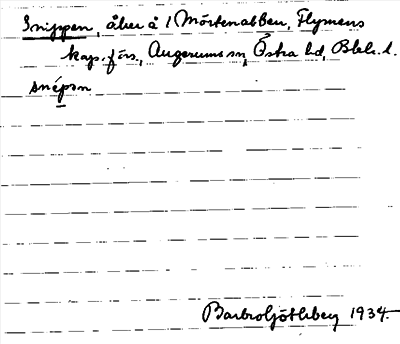 Snippen, åker å 1 Mörtenabben, Flymens
kap. förs., Augerums sn, Östra hd, Blek. l.
snépən
1934